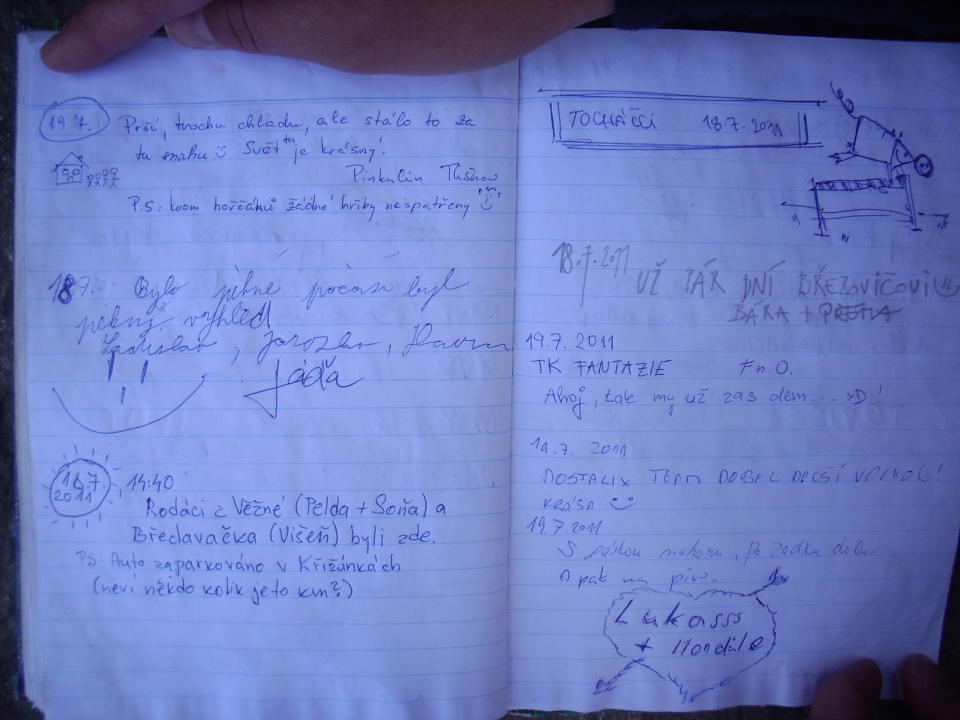 19.7. Prší, trochu chladu, ale stálo to za
tu snahu Svět tu je krásný!
Pinkulin Tišnov
P.S.: krom hořčáků žádné hřiby nespatřeny
18.7.: Bylo pěkné počasí byl
pěkný výhled
Ladislav, Jarozlav,
Láďa
18.7. 2011 14:40
Rodáci z Věžné (Pelda + Soňa) a
Břeclavačka (Višeň) byli zde.
PS: Auto zaparkováno v Křižánkách
(neví někdo kolik je to km?)
TOCHÁČCI 18.7.2011
18.7.2011
UŽ PÁR DNÍ BŘEZOVIČOVI
BÁRA +
19.7.2011
TK FANTAZIE Fn.O.
Ahoj, tak my už zas dem... xD!
19.7. 2011
DOSTALIX TEAM DOBYL DALŠÍ VRCHOL!
KRÁSA
19.7.2011
S páskou nahoru, po zadku dolu...
a pak na pivo.
Lukasss
+ Mondale